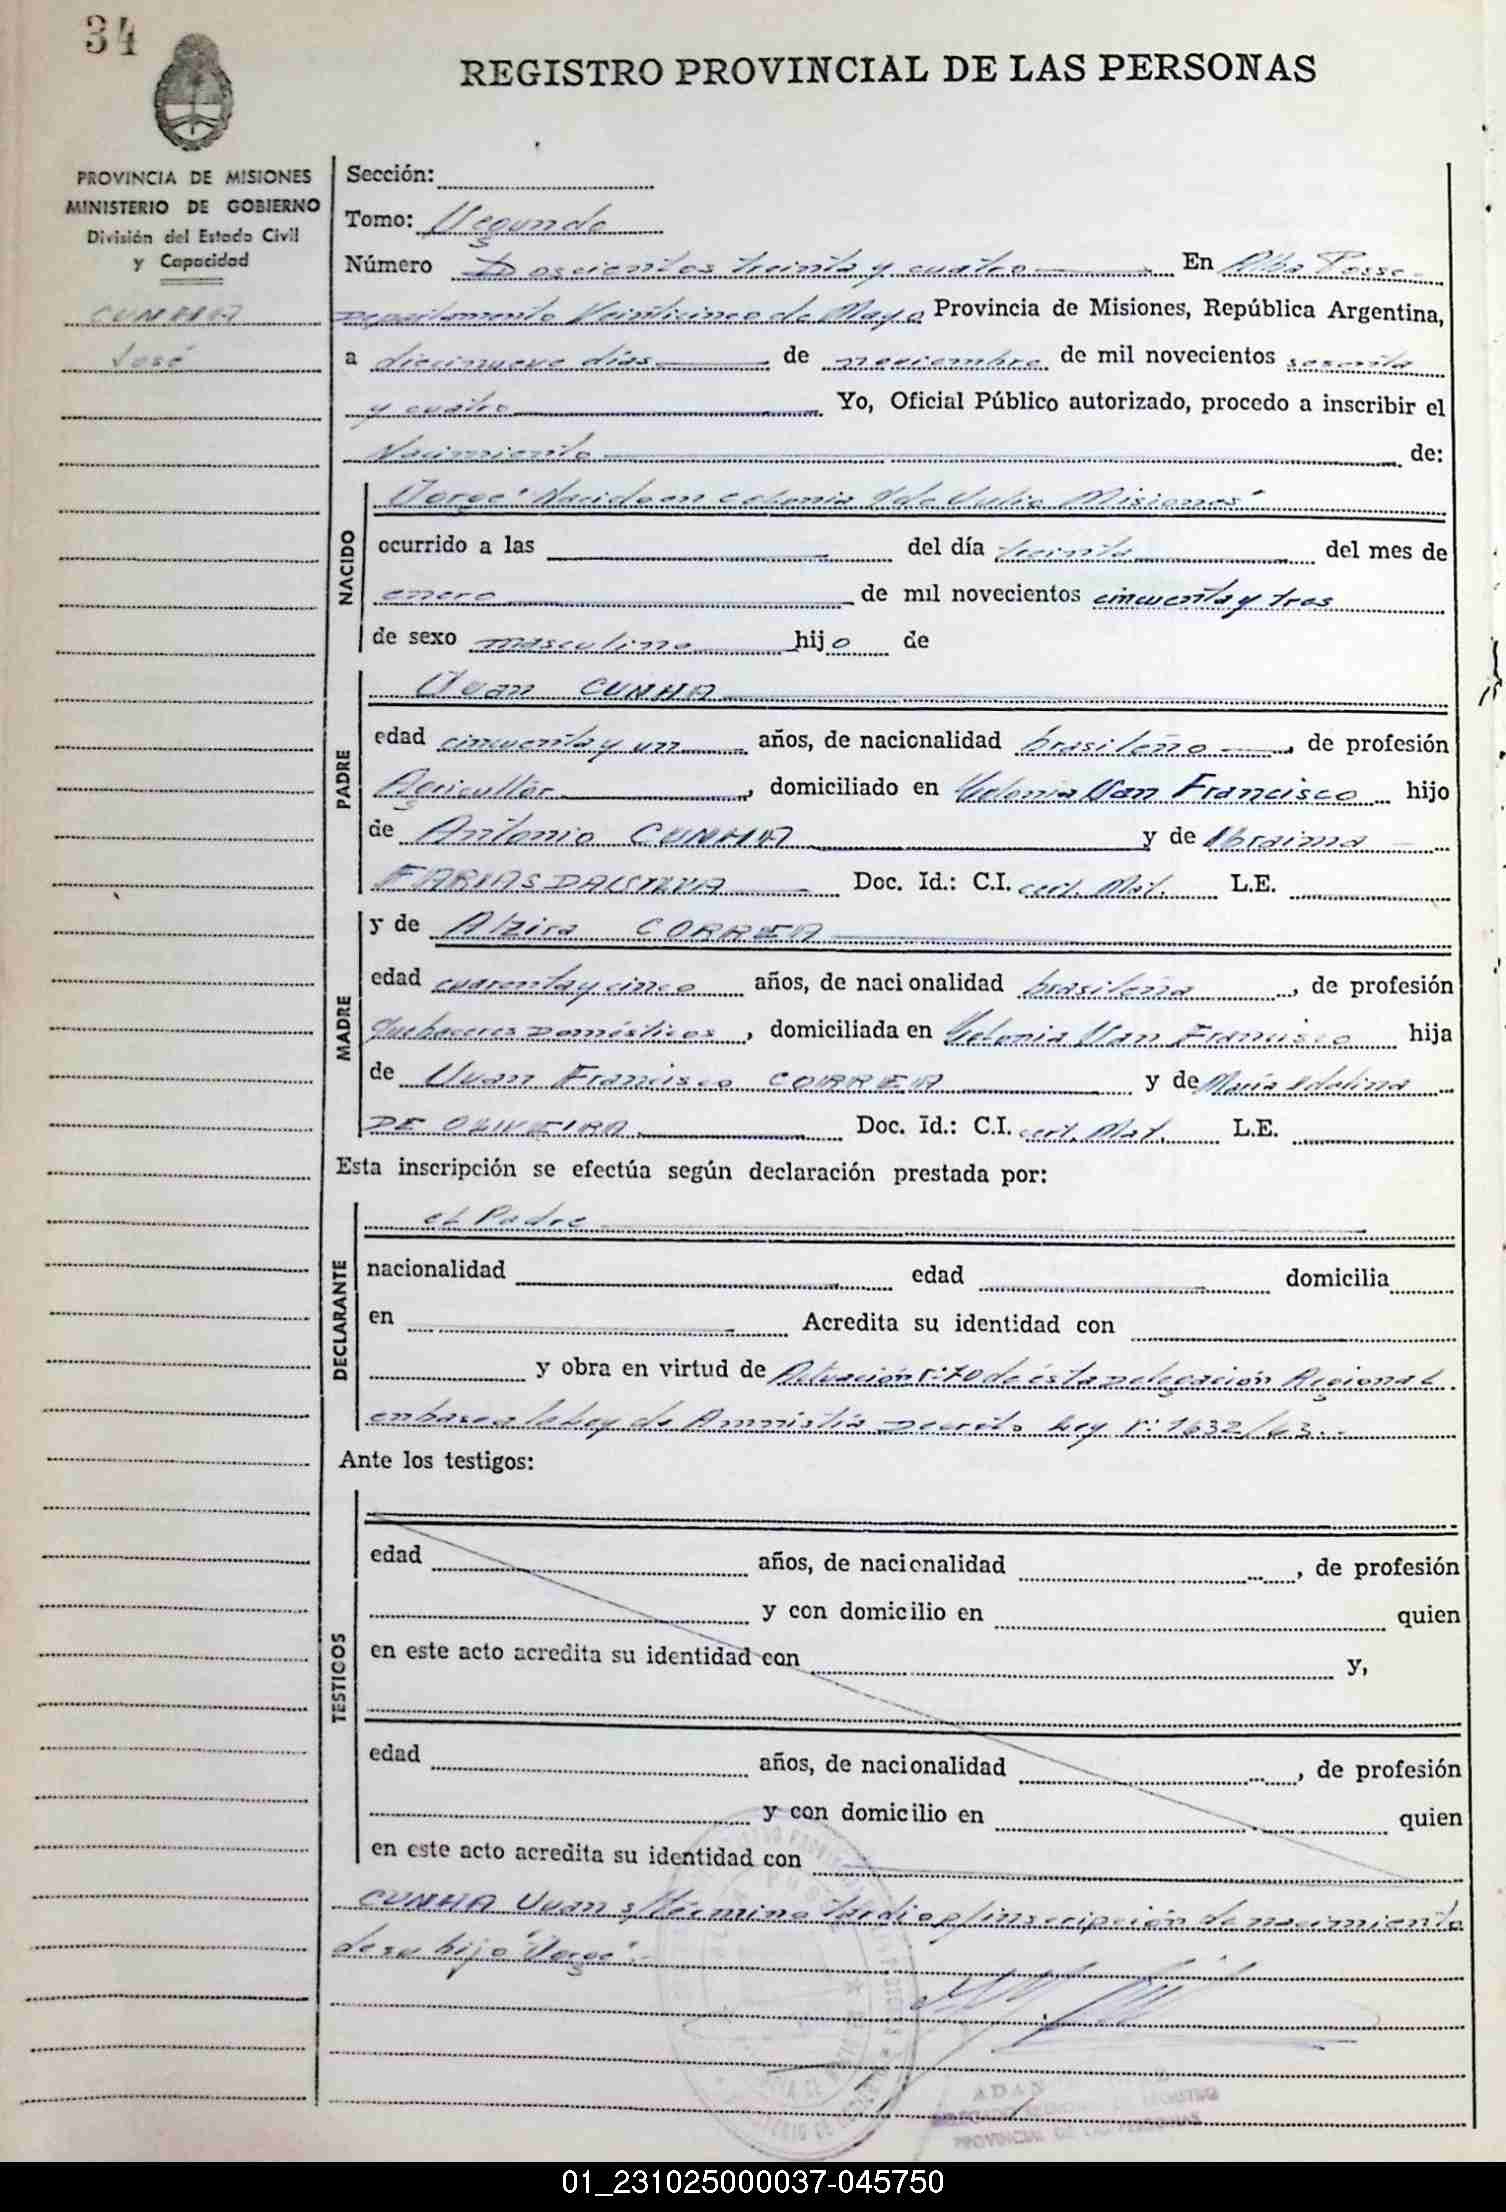 34
REGISTRO PROVINCIAL DE LAS PERSONAS
PROVINCIA DE MISIONES
MINISTERIO DE GOBIERNO
División del Estado Civil
y Capacidad
CUNHA
José
Sección:
Tomo: Segundo
Número Doscientos treinta y cuatro En Alba Posse
Departamento Veinticinco de Mayo Provincia de Misiones, República Argentina,
a diecinueve días de noviembre de mil novecientos sesenta
y cuatro Yo, Oficial Público autorizado, procedo a inscribir el
Nacimiento de:
NACIDO
"Jorge" Nacido en Colonia 9 de Julio Misiones"
ocurrido a las del día treinta del mes de
enero de mil novecientos cincuenta y tres
de sexo masculino hijo de
PADRE
Juan CUNHA
edad cincuenta y un años, de nacionalidad brasileño, de profesión
Agricultor, domiciliado en Colonia San Francisco hijo
de Antonio CUNHA y de
FARIAS DALSILVA Doc. Id.: C.I. cert. Mat. L.E.
MADRE
y de Alzira CORREA
edad cuarenta y cinco años, de nacionalidad brasileña, de profesión
Quehaceres Domésticos, domiciliada en Colonia San Francisco hija
de Juan Francisco CORREA y de María Idalina
DE OLIVEIRA Doc. Id.: C.I. cert. Mat. L.E.
Esta inscripción se efectúa según declaración prestada por:
DECLARANTE
el Padre
nacionalidad edad domicilia
en Acredita su identidad con
y obra en virtud de Actuación n: 70 de ésta Delegación Regional
en base a la Ley de Amnistía Decreto Ley n: 1632/63.-
Ante los testigos:
TESTIGOS
edad años, de nacionalidad , de profesión
y con domicilio en quien
en este acto acredita su identidad con y,
edad años, de nacionalidad , de profesión
y con domicilio en quien
en este acto acredita su identidad con
CUNHA Juan s/término tardío p/inscripción de nacimiento
de su hijo "Jorge".-
ADAN
PROVINCIAL DE LAS PERSONAS
01_231025000037-045750